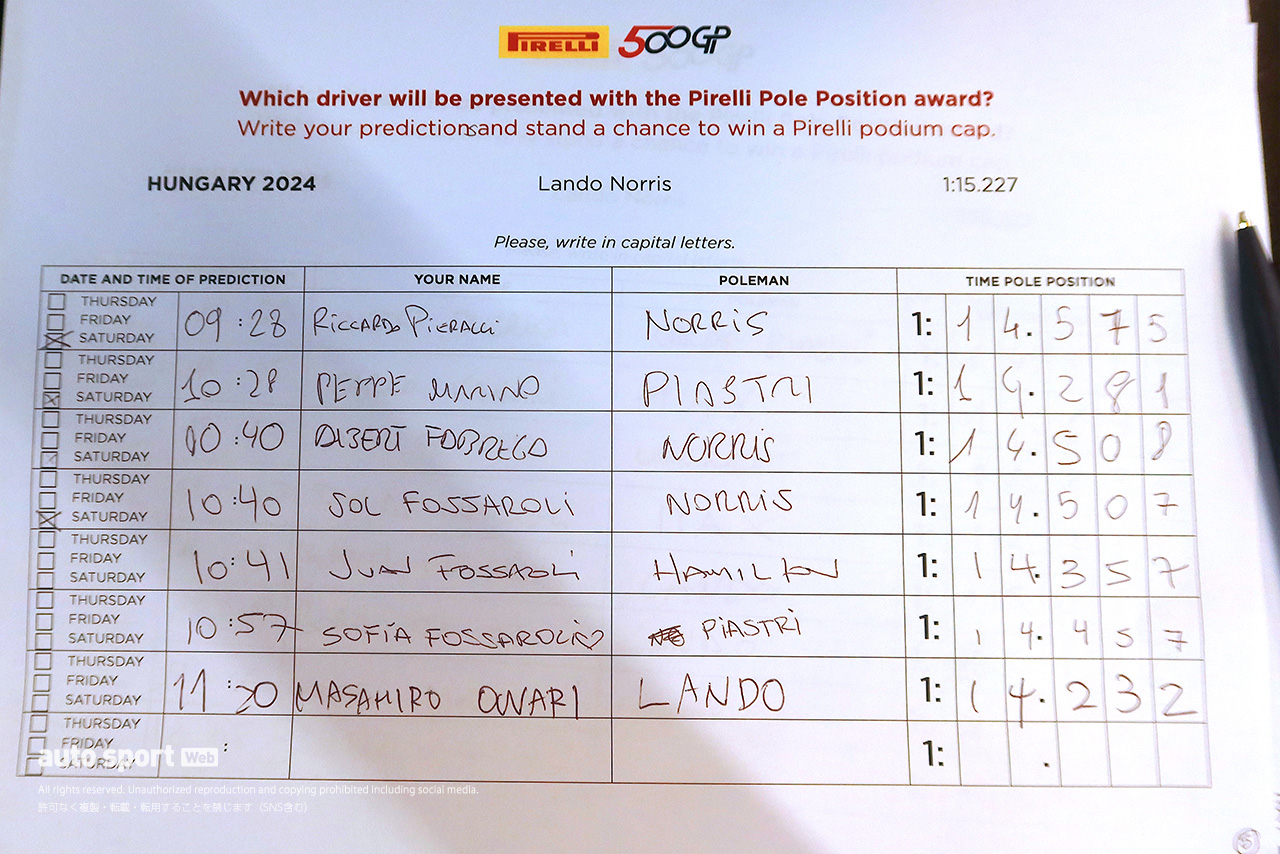 PIRELLI 500GP
Which driver will be presented with the Pirelli Pole Position award?
Write your predictions and stand a chance to win a Pirelli podium cap.
HUNGARY 2024 Lando Norris 1:15.227
Please, write in capital letters.
DATE AND TIME OF PREDICTION YOUR NAME POLEMAN TIME POLE POSITION
THURSDAY
FRIDAY 09:28 RICCARDO PIERALLI NORRIS 1: 14.575
SATURDAY
THURSDAY
FRIDAY 10:28 PEPPE MARINO PIASTRI 1: 14.281
SATURDAY
THURSDAY
FRIDAY 10:40 ALBERT FABREGA NORRIS 1: 14.508
SATURDAY
THURSDAY
FRIDAY 10:40 SOL FOSSAROLI NORRIS 1: 14.507
SATURDAY
THURSDAY
FRIDAY 10:41 JUAN FOSSAROLI HAMILTON 1: 14.357
SATURDAY
THURSDAY
FRIDAY 10:57 SOFÍA FOSSAROLI PIASTRI 1: 14.457
SATURDAY
THURSDAY
FRIDAY 11:20 MASAHIRO OWARI LANDO 1: 14.232
SATURDAY
THURSDAY
FRIDAY : 1: .
SATURDAY
auto sport Web
All rights reserved. Unauthorized reproduction and copying prohibited including social media.
許可なく複製・転載・転用することを禁じます（SNS含む）